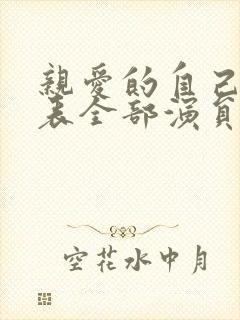 親愛的自己
表全部演員
空花水中月